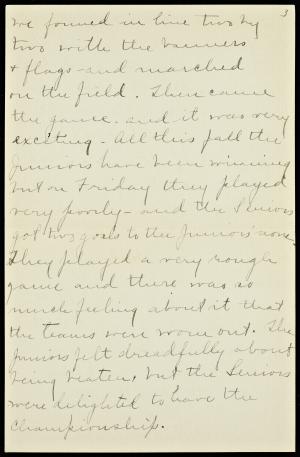 3
we formed in line two by
two with the banners
& flags - and marched
on the field. Then came
the game. and it was very
exciting - All this fall the
Juniors have been winning
but on Friday they played
very poorly - and the Seniors
got two goals to the Juniors' none.
They played a very rough
game and there was so
much feeling about it that
the teams were worn out. The
Juniors felt dreadfully about
being beaten, but the Seniors
were delighted to have the
championship.